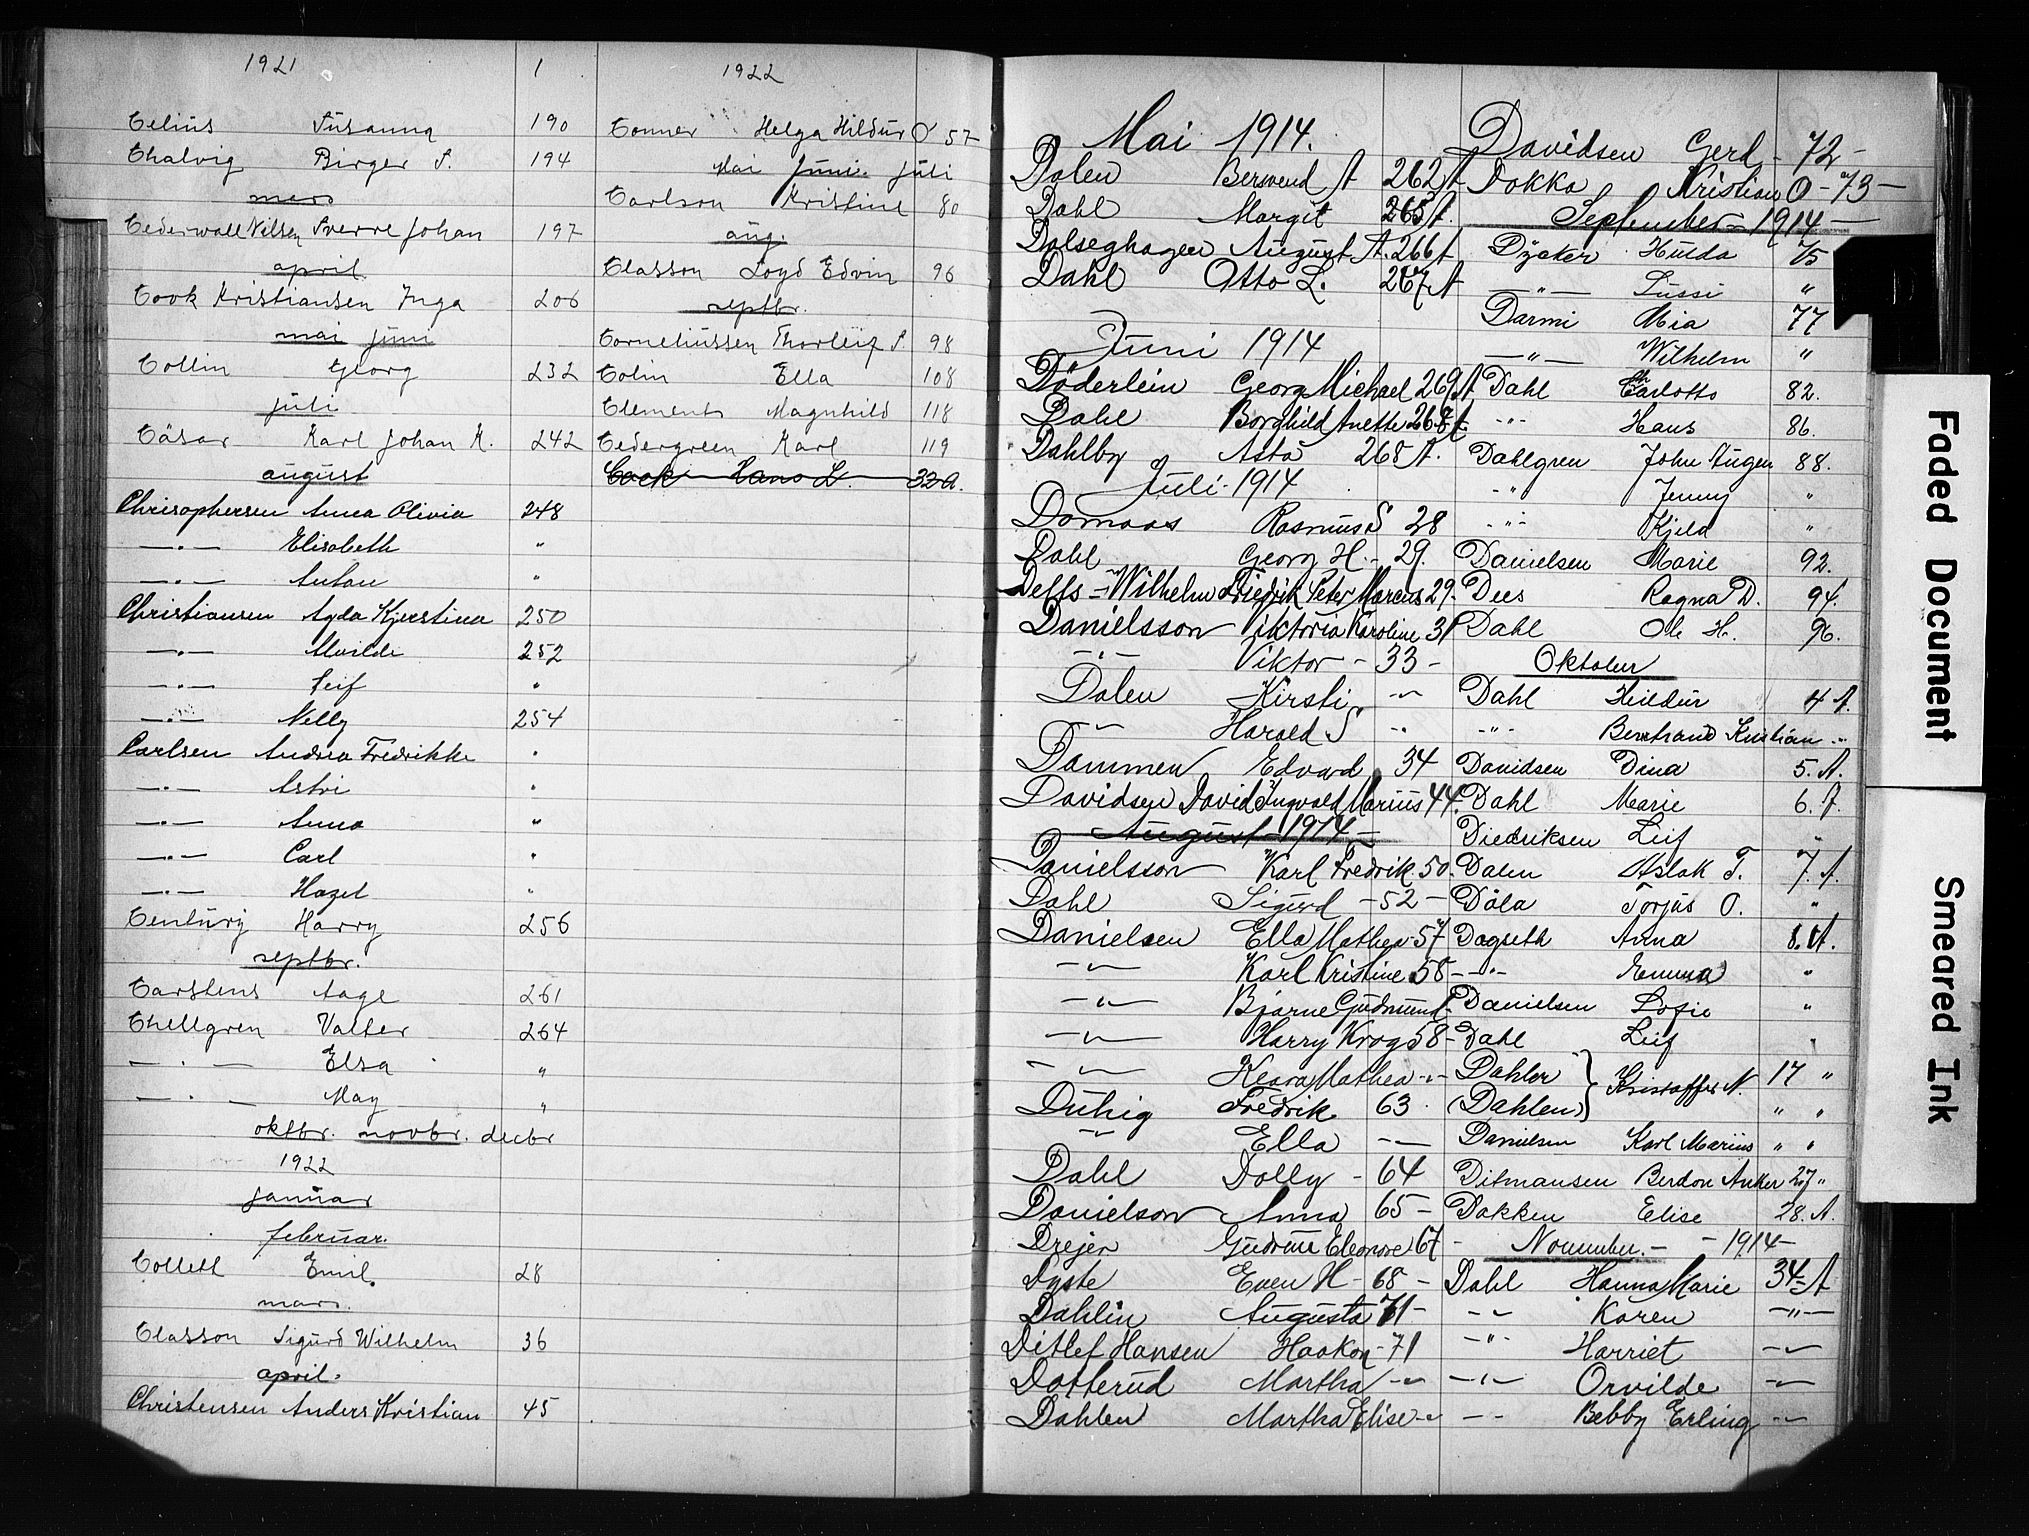 1921 1
Celius Susanna 190
Chalvig Birger S. 194
mars
Cederwall Nilsen Sverre Johan 197
april
Cook Kristiansen Inga 206
mai juni
Collin Georg 232
juli
Cäsar Karl Johan K. 242
august
Chrisophersen Anna Olivia 248
—"— Elisabeth "
—"— Anton "
Christiansen Agda Kjerstina 250
—"— Alvilde 252
—"— Leif "
—"— Nelly 254
Carlsen Andrea Fredrikke "
—"— Astri "
—"— Anna "
—"— Carl "
—"— Hazel "
Century Harry 256
septbr.
Carstens Aage 261
Chellgren Valter 264
—"— Elsa "
—"— May "
oktbr. novbr. decbr
1922
januar
februar.
Collett Emil. 28
mars.
Classon Sigurd Wilhelm 36
april.
Christensen Anders Kristian 45
1922
Conner Helga Hildur O 57
Mai Juni. juli
Carlson Kristine 80
aug.
Classon Loyd Edvin 96
septbr.
Corneliussen Thorleif S. 98
Colin Ella 108
Clements Magnhild 118
Cedergreen Karl 119
Cock Hans L. 32 A.
Mai 1914.
Dalen Bersvend A 262 A
Dahl Margit 265 A.
Dalseghagen August A. 266 A
Dahl Otto L. 267 A
Juni 1914
Döderlein Georg Michael 269 A
Dahl Borghild Anette 268 A
Dahlby Asta 268 A.
Juli 1914
Domaas Rasmus S 28
Dahl Georg H. - 29.
Deffs - Wilhelm Friedrik Peter Marcus 29-
Danielsson Viktoria Karoline 31
—"— Viktor - 33 -
Dalen Kirsti "
" Harald S "
Dammen Edvard 34
Davidsen David Ingvald Marius 44.
August 1914 -
Danielsson Karl Fredrik 50.
Dahl Sigurd - 52 -
Danielsen Ella Mathea - 57
—"— Karl Kristine 58 -
—"— Bjarne Gudmund "
—"— Harry Krog 58 -
—"— Klara Mathea - " -
Duhig Fredrik 63.
" Ella - —
Dahl Dolly - 64
Danielson Anna 65 -
Drejer Gudrun Eleonore 67 -
Dyste Even H - 68 -
Dahlin Augusta 71 -
Ditlef Hansen Haakon - 71
Dotterud Martha "
Dahlen Martha Elise "
Davidsen Gerd - 72 -
Dokka Kristian O - 73 -
September - 1914 —
Dyster Hulda 75
—"— Sussi "
Darmi Mia 77
—"— Wilhelm "
Dahl Carlotto 82.
-"- Hans 86.
Dahlgren John Augen 88.
-"- Jenny "
-"- Kjeld "
Danielsen Marie 92.
Dees Ragna D. 94.
Dahl Ole H. 96.
Oktober
Dahl Hildur 4 A.
-"- Berntrand Kristian "
Davidsen Dina 5. A.
Dahl Marie 6. A.
Diedriksen Leif "
Dalen Aslak T. 7. A.
Dåla Torjus O. "
Dagseth Anna 8. A.
—"— Emma "
Danielsen Sofie "
Dahl Leif "
Dahler } Kristoffer N. 17 "
(Dahlen) } " "
Danielsen Karl Marius " "
Ditmansen Berdon Anker 27 "
Dokken Elise 28. A.
November. - - 1914 -
Dahl Hanna Marie 34 - A
-"- Karen —"—
-"- Harriet —"—
—"— Orvilde —"—
—"— Bebby Erling —"—
Faded Document
Smeared Ink